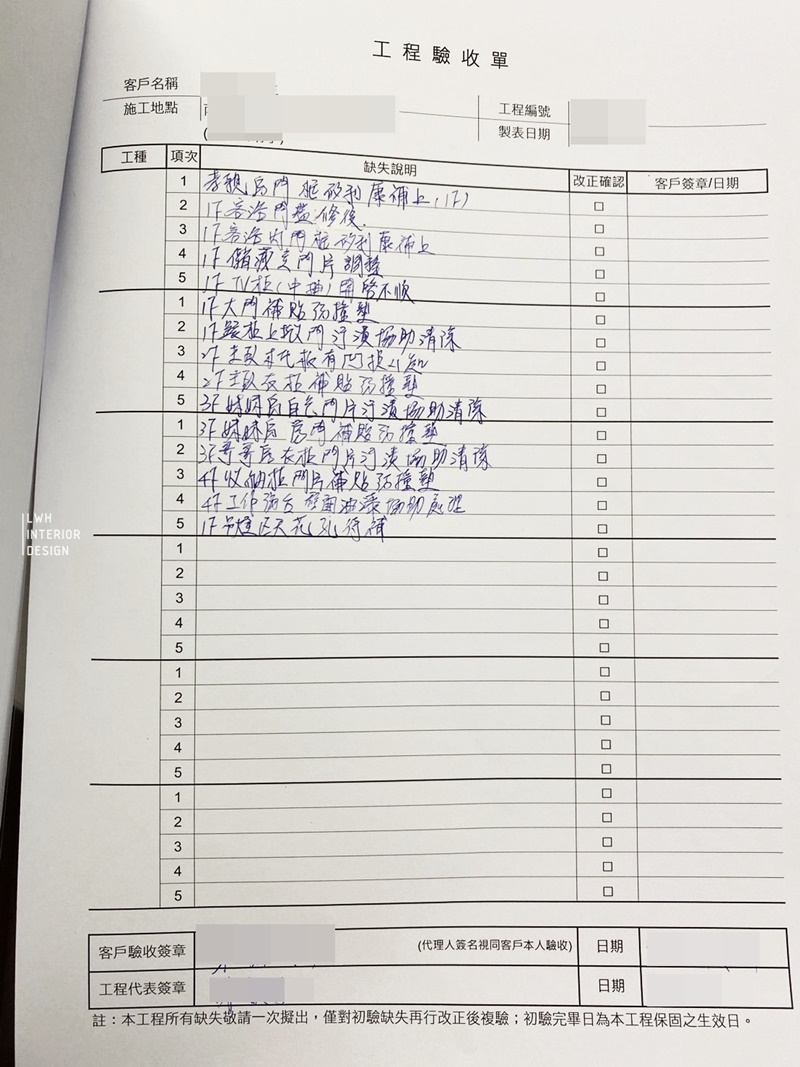 工程驗收單
客戶名稱
施工地點 工程編號
製表日期
工種 項次 缺失說明 改正確認 客戶簽章/日期
1 孝親房門框矽利康補上(1F)
2 1F客浴門檻修復.
3 1F客浴內門框矽利康補上
4 1F儲藏室門片調整
5 1F TV櫃(中抽)開啓不順
1 1F大門補貼防撞墊
2 1F 櫃上掀門汙漬協助清除
3 2F主臥木地板有凹損
4 2F主臥衣櫃補貼防撞墊
5 3F妹妹房白色門片汙漬協助清除
1 3F妹妹房房門補貼防撞墊
2 3F哥哥房衣櫃門片汙漬協助清除
3 4F收納櫃門片補貼防撞墊
4 4F工作陽台 油漆協助處理
5 1F 區天花孔待補
1
2
3
4
5
1
2
3
4
5
1
2
3
4
5
LWH
INTERIOR
DESIGN
客戶驗收簽章 (代理人簽名視同客戶本人驗收) 日期
工程代表簽章 日期
註：本工程所有缺失敬請一次擬出，僅對初驗缺失再行改正後複驗；初驗完畢日為本工程保固之生效日。